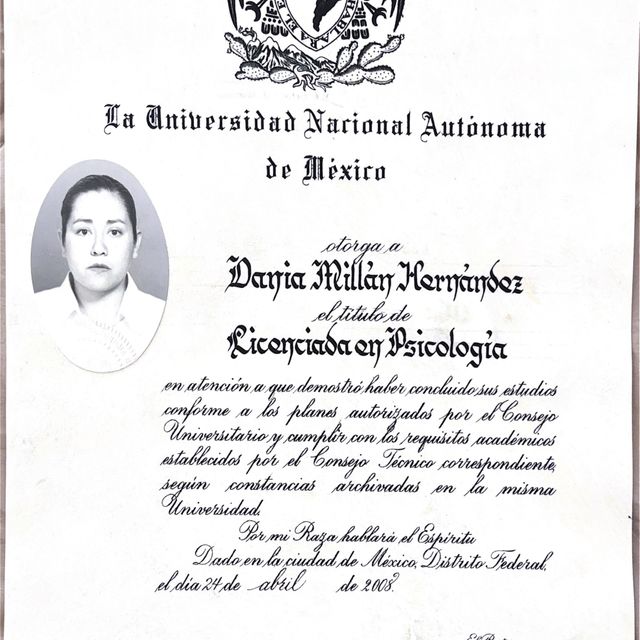 HABLARA EL E
La Universidad Nacional Autónoma
de México
otorga a
Dania Millán Hernández
el título de
Licenciada en Psicología
en atención a que demostró haber concluido sus estudios
conforme a los planes autorizados por el Consejo
Universitario y cumplir con los requisitos académicos
establecidos por el Consejo Técnico correspondiente,
según constancias archivadas en la misma
Universidad.
Por mi Raza hablará el Espíritu
Dado en la ciudad de México, Distrito Federal,
el día 24 de abril de 2008.